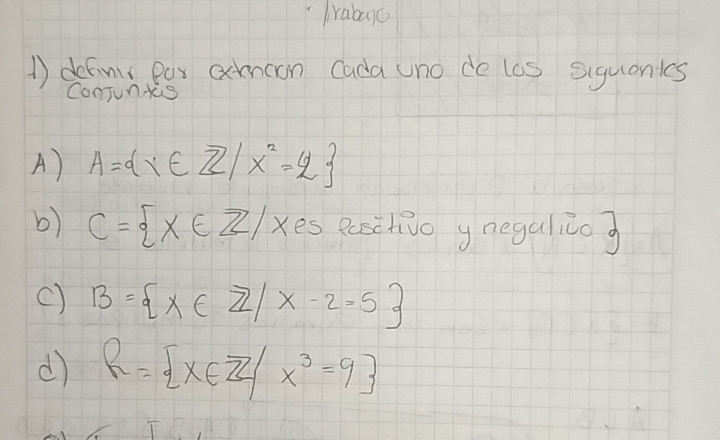 Trabajo
1) definir por extencion Cada uno de los siguientes
Conjuntos
A) A={x ∈ ℤ/ x²=4}
b) C={x ∈ ℤ/ x es positivo y negativo}
c) B={x ∈ ℤ/ x-2=5}
d) R={x∈ℤ/ x³=9}